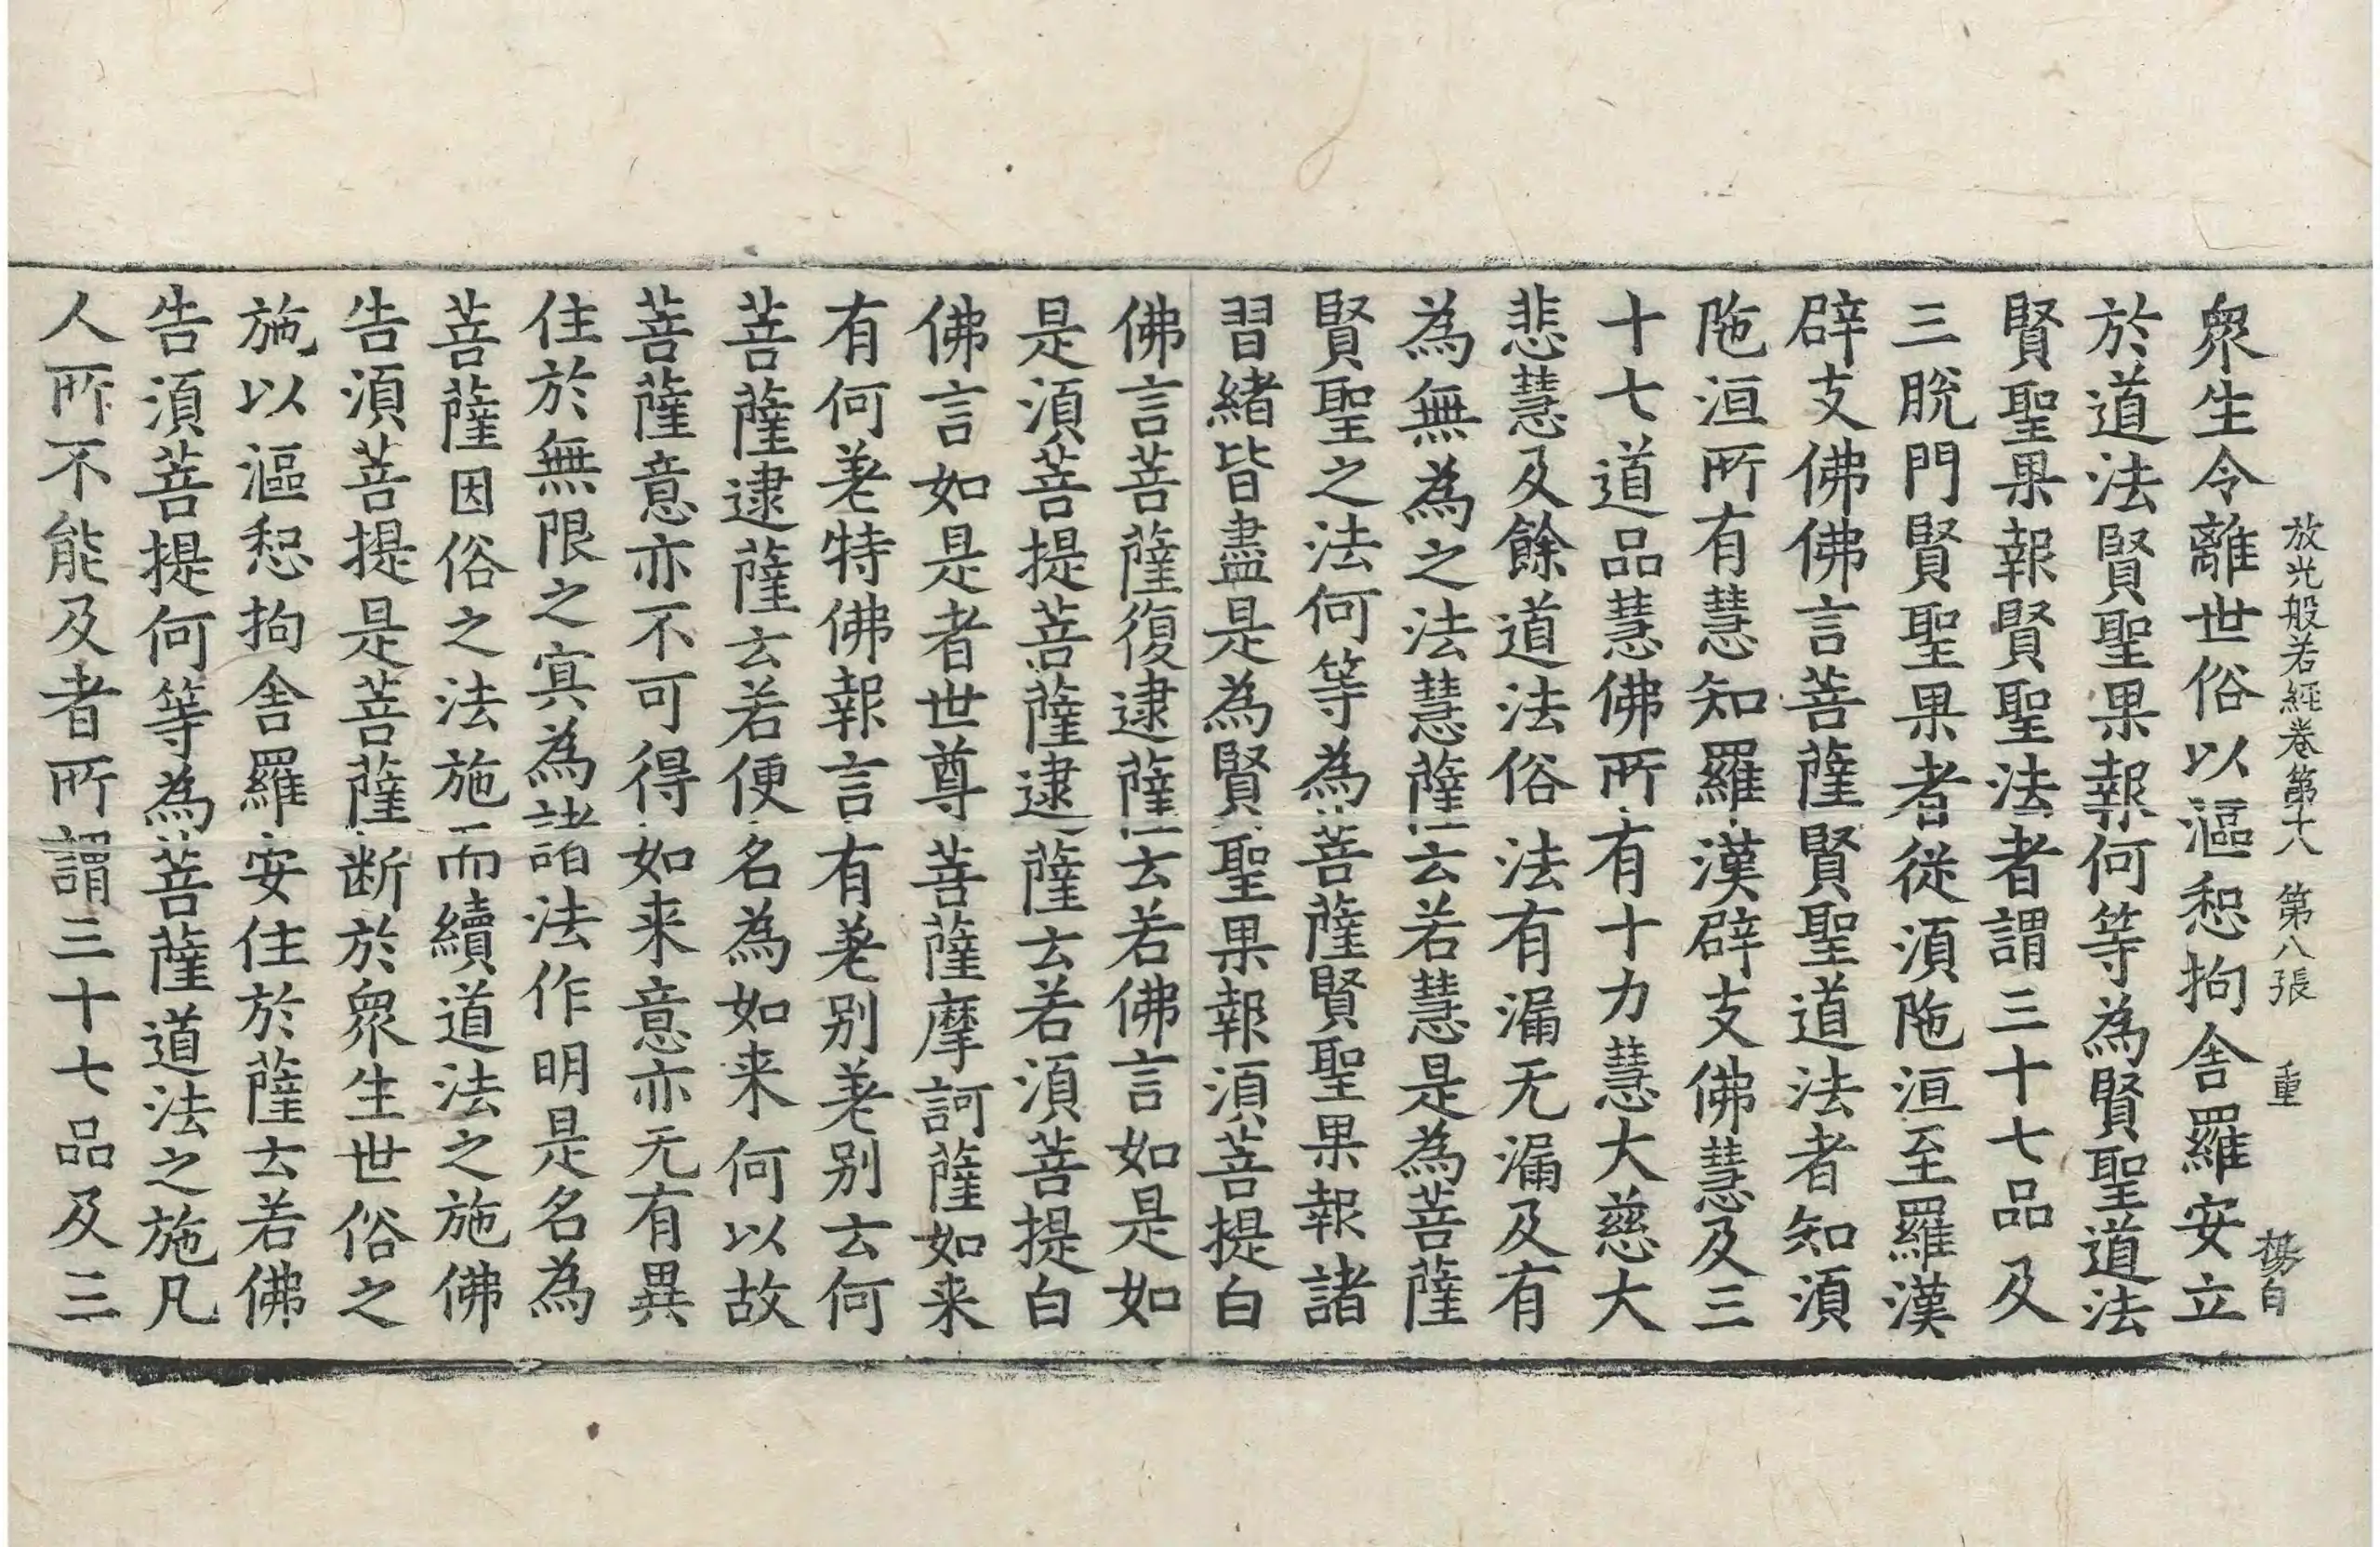 放光般若經卷第十八 第八張 重 楊白
衆生令離世俗以漚惒拘舍羅安立
於道法賢聖果報何等為賢聖道法
賢聖果報賢聖法者謂三十七品及
三脫門賢聖果者從湏陁洹至羅漢
辟支佛佛言菩薩賢聖道法者知湏
陁洹所有慧知羅漢辟支佛慧及三
十七道品慧佛所有十力慧大慈大
悲慧及餘道法俗法有漏无漏及有
為無為之法慧薩云若慧是為菩薩
賢聖之法何等為菩薩賢聖果報諸
習緒皆盡是為賢聖果報湏菩提白
佛言菩薩復逮薩云若佛言如是如
是湏菩提菩薩逮薩云若湏菩提白
佛言如是者世尊菩薩摩訶薩如来
有何差特佛報言有差別差別云何
菩薩逮薩云若便名為如来何以故
菩薩意亦不可得如来意亦无有異
住於無限之㝠為諸法作明是名為
菩薩因俗之法施而續道法之施佛
告湏菩提是菩薩断於衆生世俗之
施以漚惒拘舍羅安住於薩云若佛
告湏菩提何等為菩薩道法之施凡
人所不能及者所謂三十七品及三